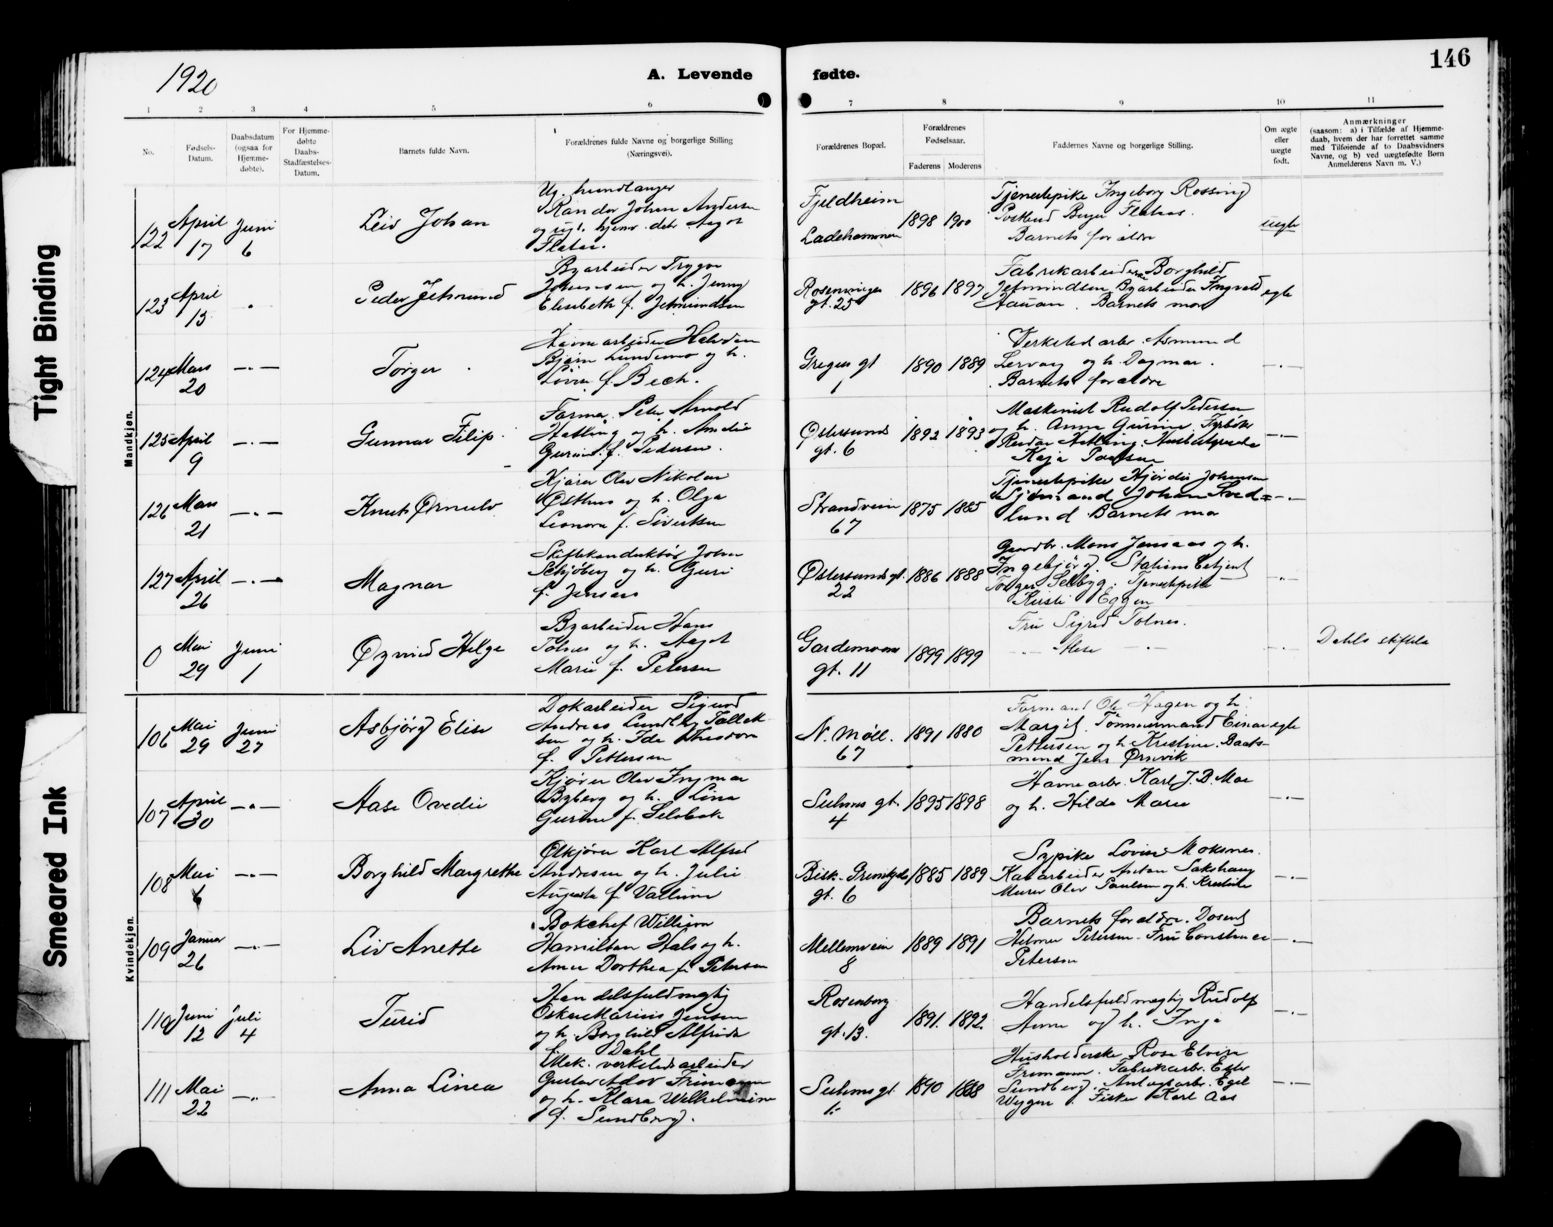 146
1920
A. Levende
fødte.
1 2 3 4 5 6 7 8 9 10 11
No.
Fødsels-
Datum.
Daabsdatum
(ogsaa for
Hjemme-
døbte).
For Hjemme-
døbte
Daabs-
Stadfæstelses-
Datum.
Barnets fulde Navn.
Forældrenes fulde Navne og borgerlige Stilling
(Næringsvei).
Forældrenes Bopæl.
Forældrenes
Fødselsaar.
Faderens Moderens
Faddernes Navne og borgerlige Stilling.
Om ægte
eller
uægte
født.
Anmærkninger
(saasom: a) i Tilfælde af Hjemme-
daab, hvem der har forrettet samme
med Tilføiende af to Daabsvidners
Navne, og b) ved uægtefødte Børn
Anmelderens Navn m. V.)
Tight Binding
Smeared Ink
Mandkjøn.
122
April
17
Juni
6
Leiv Johan
Randor Johan Andersen
Fjeldheim
Ladehammeren
1898 1900
Tjenestepike Ingeborg Rossing
Barnets forældre
uegte
123
April
13
Peder Jetmund
Byarbeider Trygve
Johannesen og h. Jenny
Elisabeth f. Jetmundsen
gt. 25
1896 1897
Fabrikarbeider Borghild
Jetmundsen Byarbeider Ingvald
Barnets mor
egte
124
Mars
20
Torger
Havnearbeider Halvdan
Bjarne Lundemo og h.
f. Bech.
Gregus gt
1
1890 1889
Verksted arb. Asmund
Lervaag og h. Dagmar.
Barnets forældre
125
April
9
Gunnar Filip
Peter Arnold
Hatling og h. Amelie
Gurine f. Pedersen.
Østersunds
gt. 6
1892 1893
Maskinist Rudolf Pedersen
og h. Anna Gurine Fyrbøter
Kaja Paulsen
126
Mars
21
Knut Ørnulv
Kjører Olav Nikolai
Østhus og h. Olga
Leonora f. Sivertsen
Strandveien
67
1875 1885
Tjenestepike Hjørdis Johansen
Sjømand Johan Sved=
lund Barnets mor
127
April
26
Magnar
Skiftekonduktør Johan
Schjøberg og h. Guri
f. Jensaas
Østersunds gt.
22
1886 1888
Gaardbr. Mons Jensaas og h.
Ingebjørg. Stationsbetjent
Torger Selbyg. Tjenestepike
Kirsti Eggen
0
Mai
29
Juni
1
Øyvind Helge
Byarbeider Hans
Tolnes og h. Aagot
Marie f. Petersen
Gardemoens
gt. 11
1899 1899
Fru Sigrid Tolnes.
Dahls stiftelse
Kvindekjøn.
106
Mai
29
Juni
27
Asbjørg Elise
Dokarbeider Sigurd
Andreas Lundby Tollef-
sen og h. Ida Theodora
f. Pettersen
N. Møll.
67
1891 1880
Formand Ole Hagen og h.
Margit. Tømmermand Einar
Pettersen og h. Kristine. Baats-
mand Jens Ørsvik
egte
107
April
30
Aase Ovedie
Kjører Olav Ingmar
Byberg og h. Lina
Gurine f. Selabak
Suhms gt.
4
1895 1898
Havnearb. Karl J. B. Moe
og h. Hilda Marie
108
Mai
6
Borghild Margrethe
Ølkjører Karl Alfred
Andresen og h. Julie
Augusta f. Vallum
gt. 6
1885 1889
Sypike Lovise Moksnes.
Murer Olav Paulsen og h. Kristine
109
Januar
26
Liv Anette
Bokchef William
Hamilton Hals og h.
Anna Dorthea f. Petersen
Mellemveien
8
1889 1891
Barnets forældre. Dosent
Hilmar Petersen. Fru Constance
Petersen
110
Juni
12
Juli
4
Turid
Handelsfuldmægtig
Oskar Marius Jensen
og h. Borghild Alfrida
f. Dahl
Rosenborg
gt. 13.
1891. 1892.
Handelsfuldmægtig Rudolf
Aune og h. Inga
111
Mai
22
Anna Linea
Mek. verkstedsarbeider
Gustav Adov Frimann
og h. Klara Wilhelmine
f. Sundberg.
Suhms gt
1890 1888
Husholderske Rosa Elvira
Frimann. Fabrikarb. Egil
Sundberg. Egil
Fisker Karl Aas